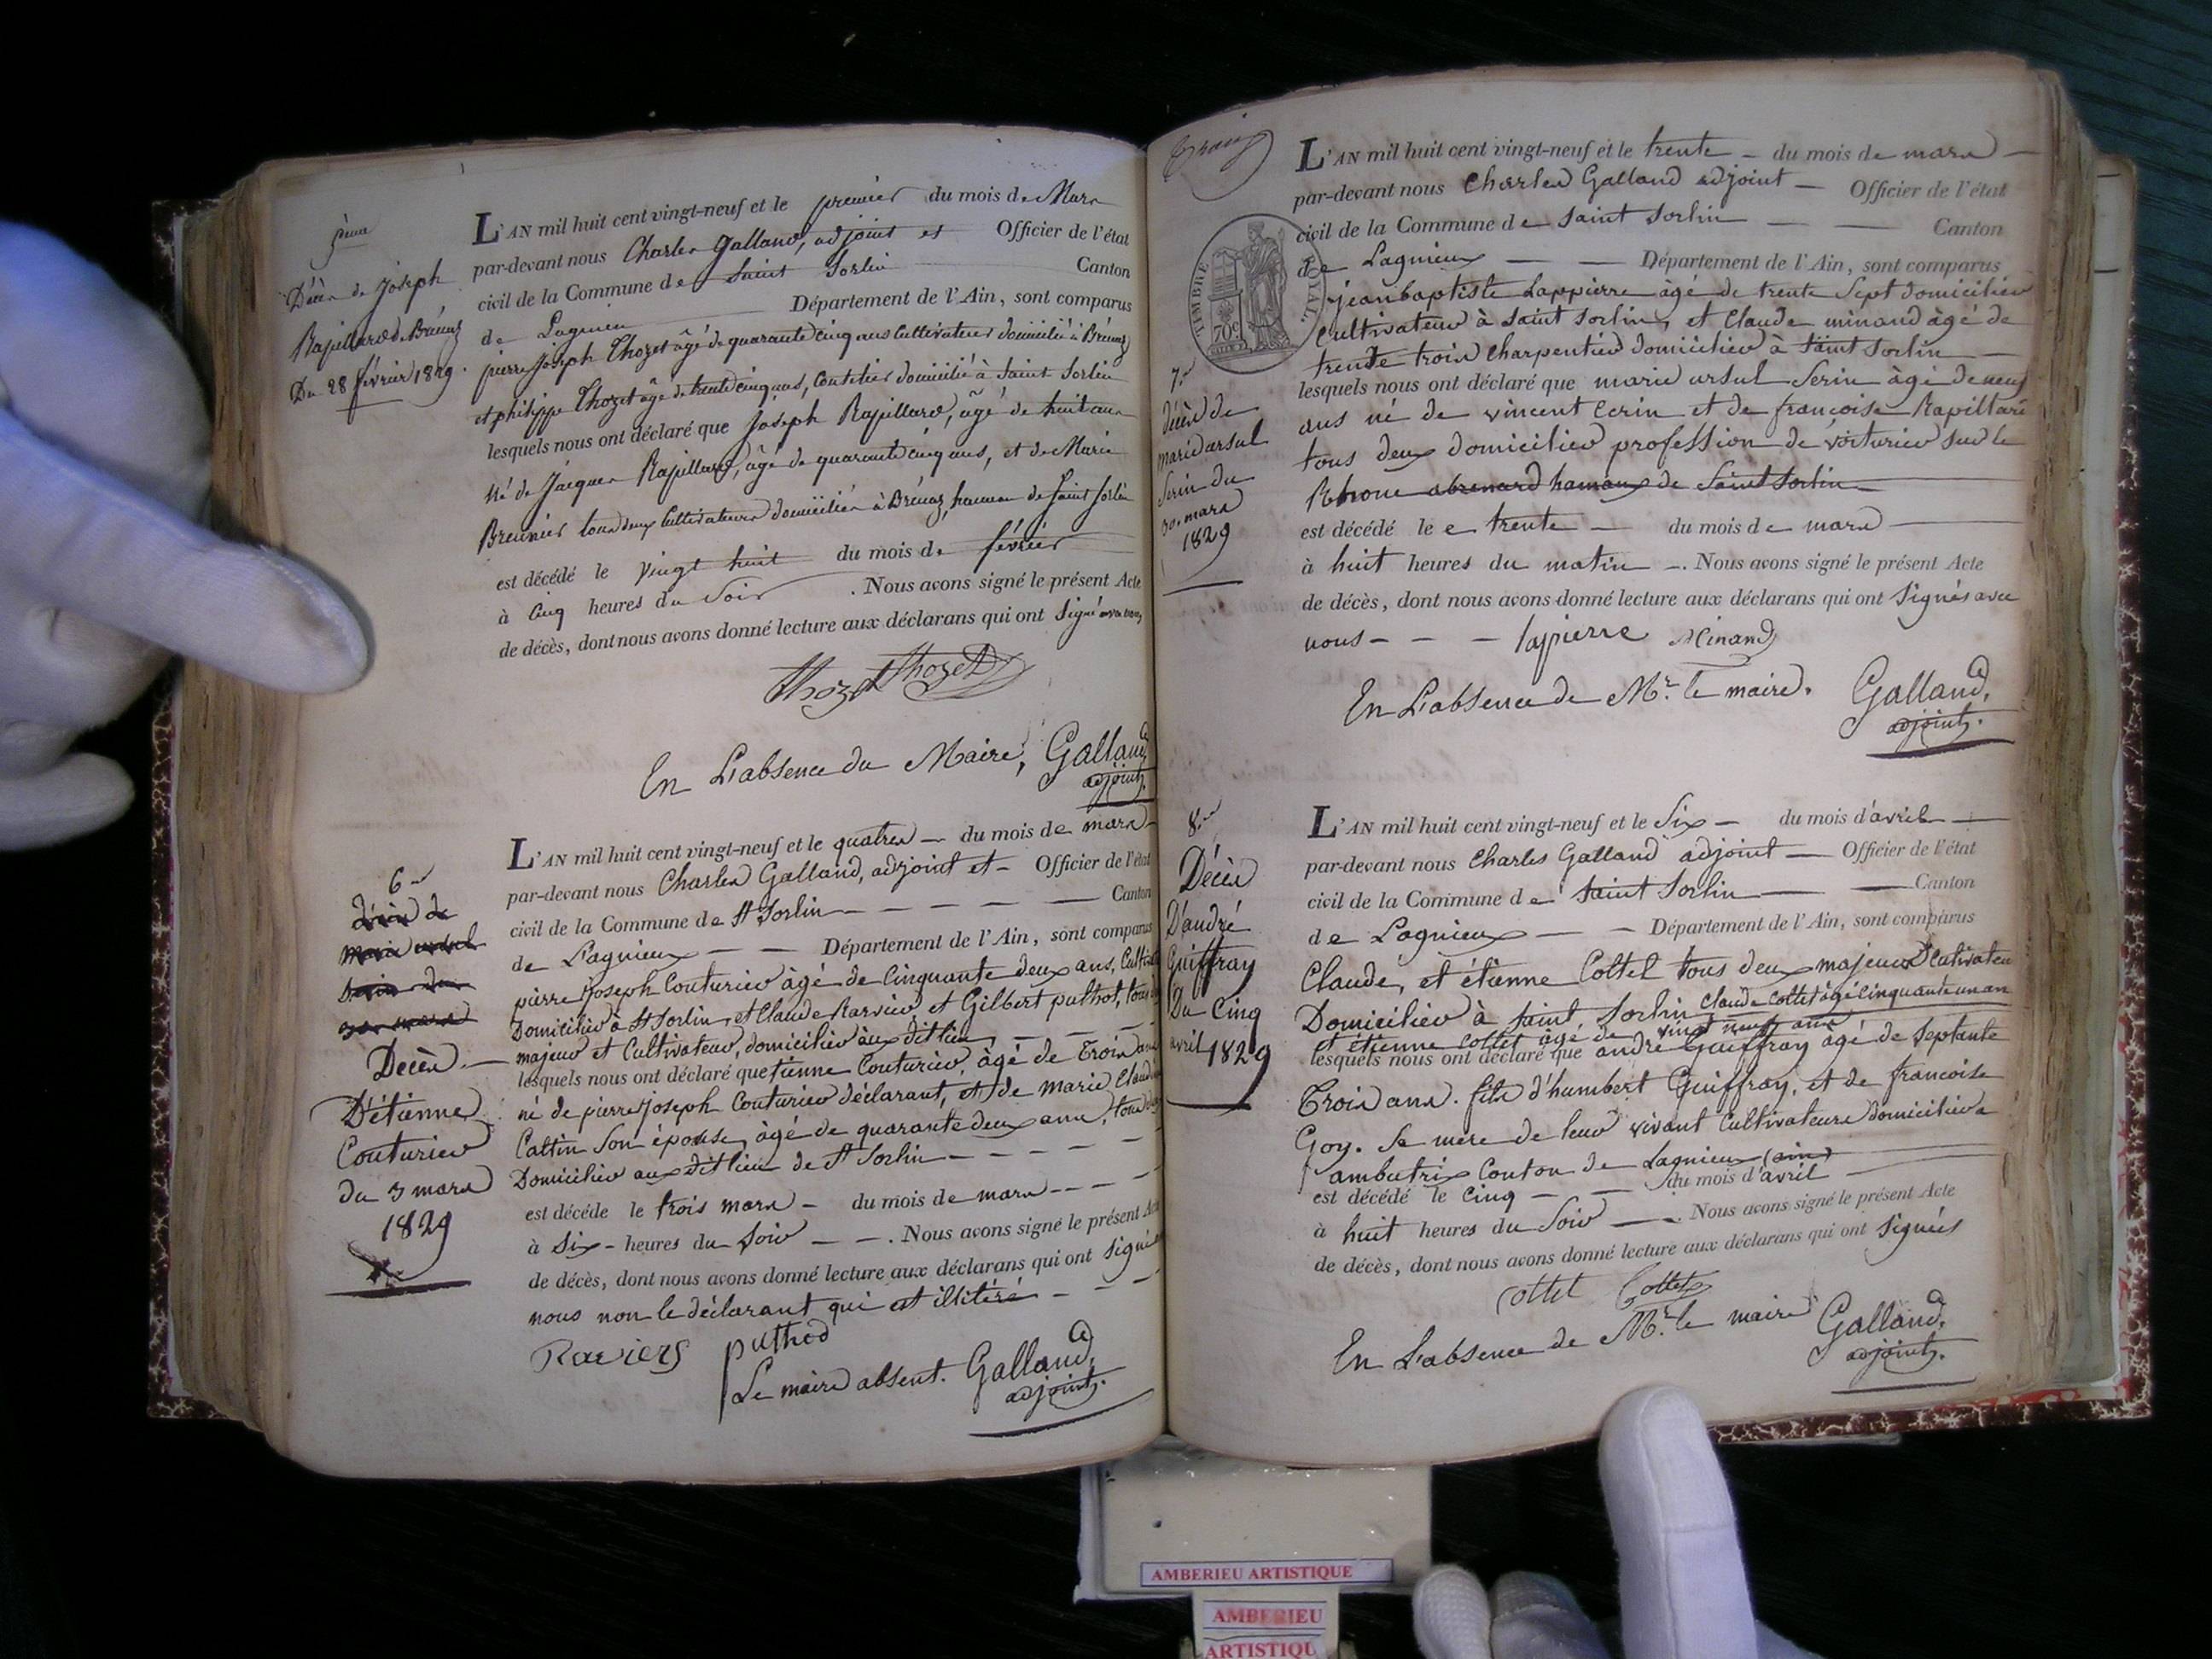 5ème
Décès de Joseph
Rapillard de Brénaz
Du 28 février 1829.
L'AN mil huit cent vingt-neuf et le premier du mois de Mars
par-devant nous Charles Galland, adjoint et Officier de l'état
civil de la Commune de Saint Sorlin Canton
de Lagnieu Département de l'Ain, sont comparus
pierre Joseph Thozet âgé de quarante cinq ans Cultivateur domicilié à Brénaz
et philippe Thozet âgé de trente cinq ans, domicilié à Saint Sorlin
lesquels nous ont déclaré que Joseph Rapillard, âgé de huit ans
Né de Jacques Rapillard, âgé de quarante cinq ans, et de Marie
Breunier tous deux Cultivateurs domiciliés à Brénaz, hameau de Saint Sorlin
est décédé le vingt huit du mois de février
à Cinq heures du Soir . Nous avons signé le présent Acte
de décès, dont nous avons donné lecture aux déclarans qui ont signé avec nous
Thozet Thozet
En L'absence du Maire, Galland,
adjoint.
6
décès de
marie ursul
serin du
30 mars
Décès
D'étienne
Couturier
du 3 mars
1829
L'AN mil huit cent vingt-neuf et le quatre du mois de mars
par-devant nous Charles Galland, adjoint et Officier de l'état
civil de la Commune de St Sorlin Canton
de Lagnieux Département de l'Ain, sont comparus
pierre joseph Couturier âgé de Cinquante deux ans,
Domicilier à St Sorlin, et Claude Ravier et Gilbert puthot, tous
majeur et Cultivateur, domicilier aux dit lieu
lesquels nous ont déclaré que étienne Couturier, âgé de Trois ans
né de pierre joseph Couturier déclarant, et de marie
Cattin Son épouse, âgé de quarante deux ans, tous
Domicilier aux dit lieu de St Sorlin
est décédé le trois mars du mois de mars
à Six heures du Soir . Nous avons signé le présent Acte
de décès, dont nous avons donné lecture aux déclarans qui ont signé
nous non le déclarant qui est illitéré
Raviers puthod
Le maire absent. Galland,
adjoint.
Trois
TIMBRE ROYAL.
70c
7
décès de
marie ursul
Serin du
30. mars
1829
L'AN mil huit cent vingt-neuf et le trente du mois de mars
par-devant nous Charles Galland adjoint Officier de l'état
civil de la Commune de Saint Sorlin Canton
de Lagnieux Département de l'Ain, sont comparus
jean baptiste Lappierre âgé de trente Sept domicilier
Cultivateur à Saint Sorlin, et Claude minand âgé de
trente trois Charpentier domicilier à Saint Sorlin
lesquels nous ont déclaré que marie ursul Serin âgé de neuf
ans né de vincent Cerin et de francoise Rapillard
tous deux domicilier profession de voiturier sur le
Rhone a brenard hamaux de Saint Sorlin
est décédé le trente du mois de mars
à huit heures du matin . Nous avons signé le présent Acte
de décès, dont nous avons donné lecture aux déclarans qui ont Signés avec
nous lapierre Minand
En L'absence de Mr. le maire. Galland,
adjoint.
8
Décès
D'andré
Guiffray
Du Cinq
avril 1829
L'AN mil huit cent vingt-neuf et le Six du mois d'avril
par-devant nous Charles Galland adjoint Officier de l'état
civil de la Commune de Saint Sorlin Canton
de Lagnieux Département de l'Ain, sont comparus
Claude, et étienne Cottet tous deux majeur Cultivateu
Domicilier à Saint Sorlin Claude Cottet âgé cinquante un an
et étienne Cottet âgé de vingt neuf ans
lesquels nous ont déclaré que andré Guiffray âgé de Septante
Trois ans. fils d'humbert Guiffray, et de francoise
Goy. Se mere de leur vivant Cultivateurs domicilier a
ambutrix Conton de Lagnieux (ain)
est décédé le Cinq du mois d'avril
à huit heures du Soir . Nous avons signé le présent Acte
de décès, dont nous avons donné lecture aux déclarans qui ont Signés
Cottet Cottet
En L'absence de Mr. le maire Galland,
adjoint.
AMBERIEU ARTISTIQUE
AMBERIEU
ARTISTIQU